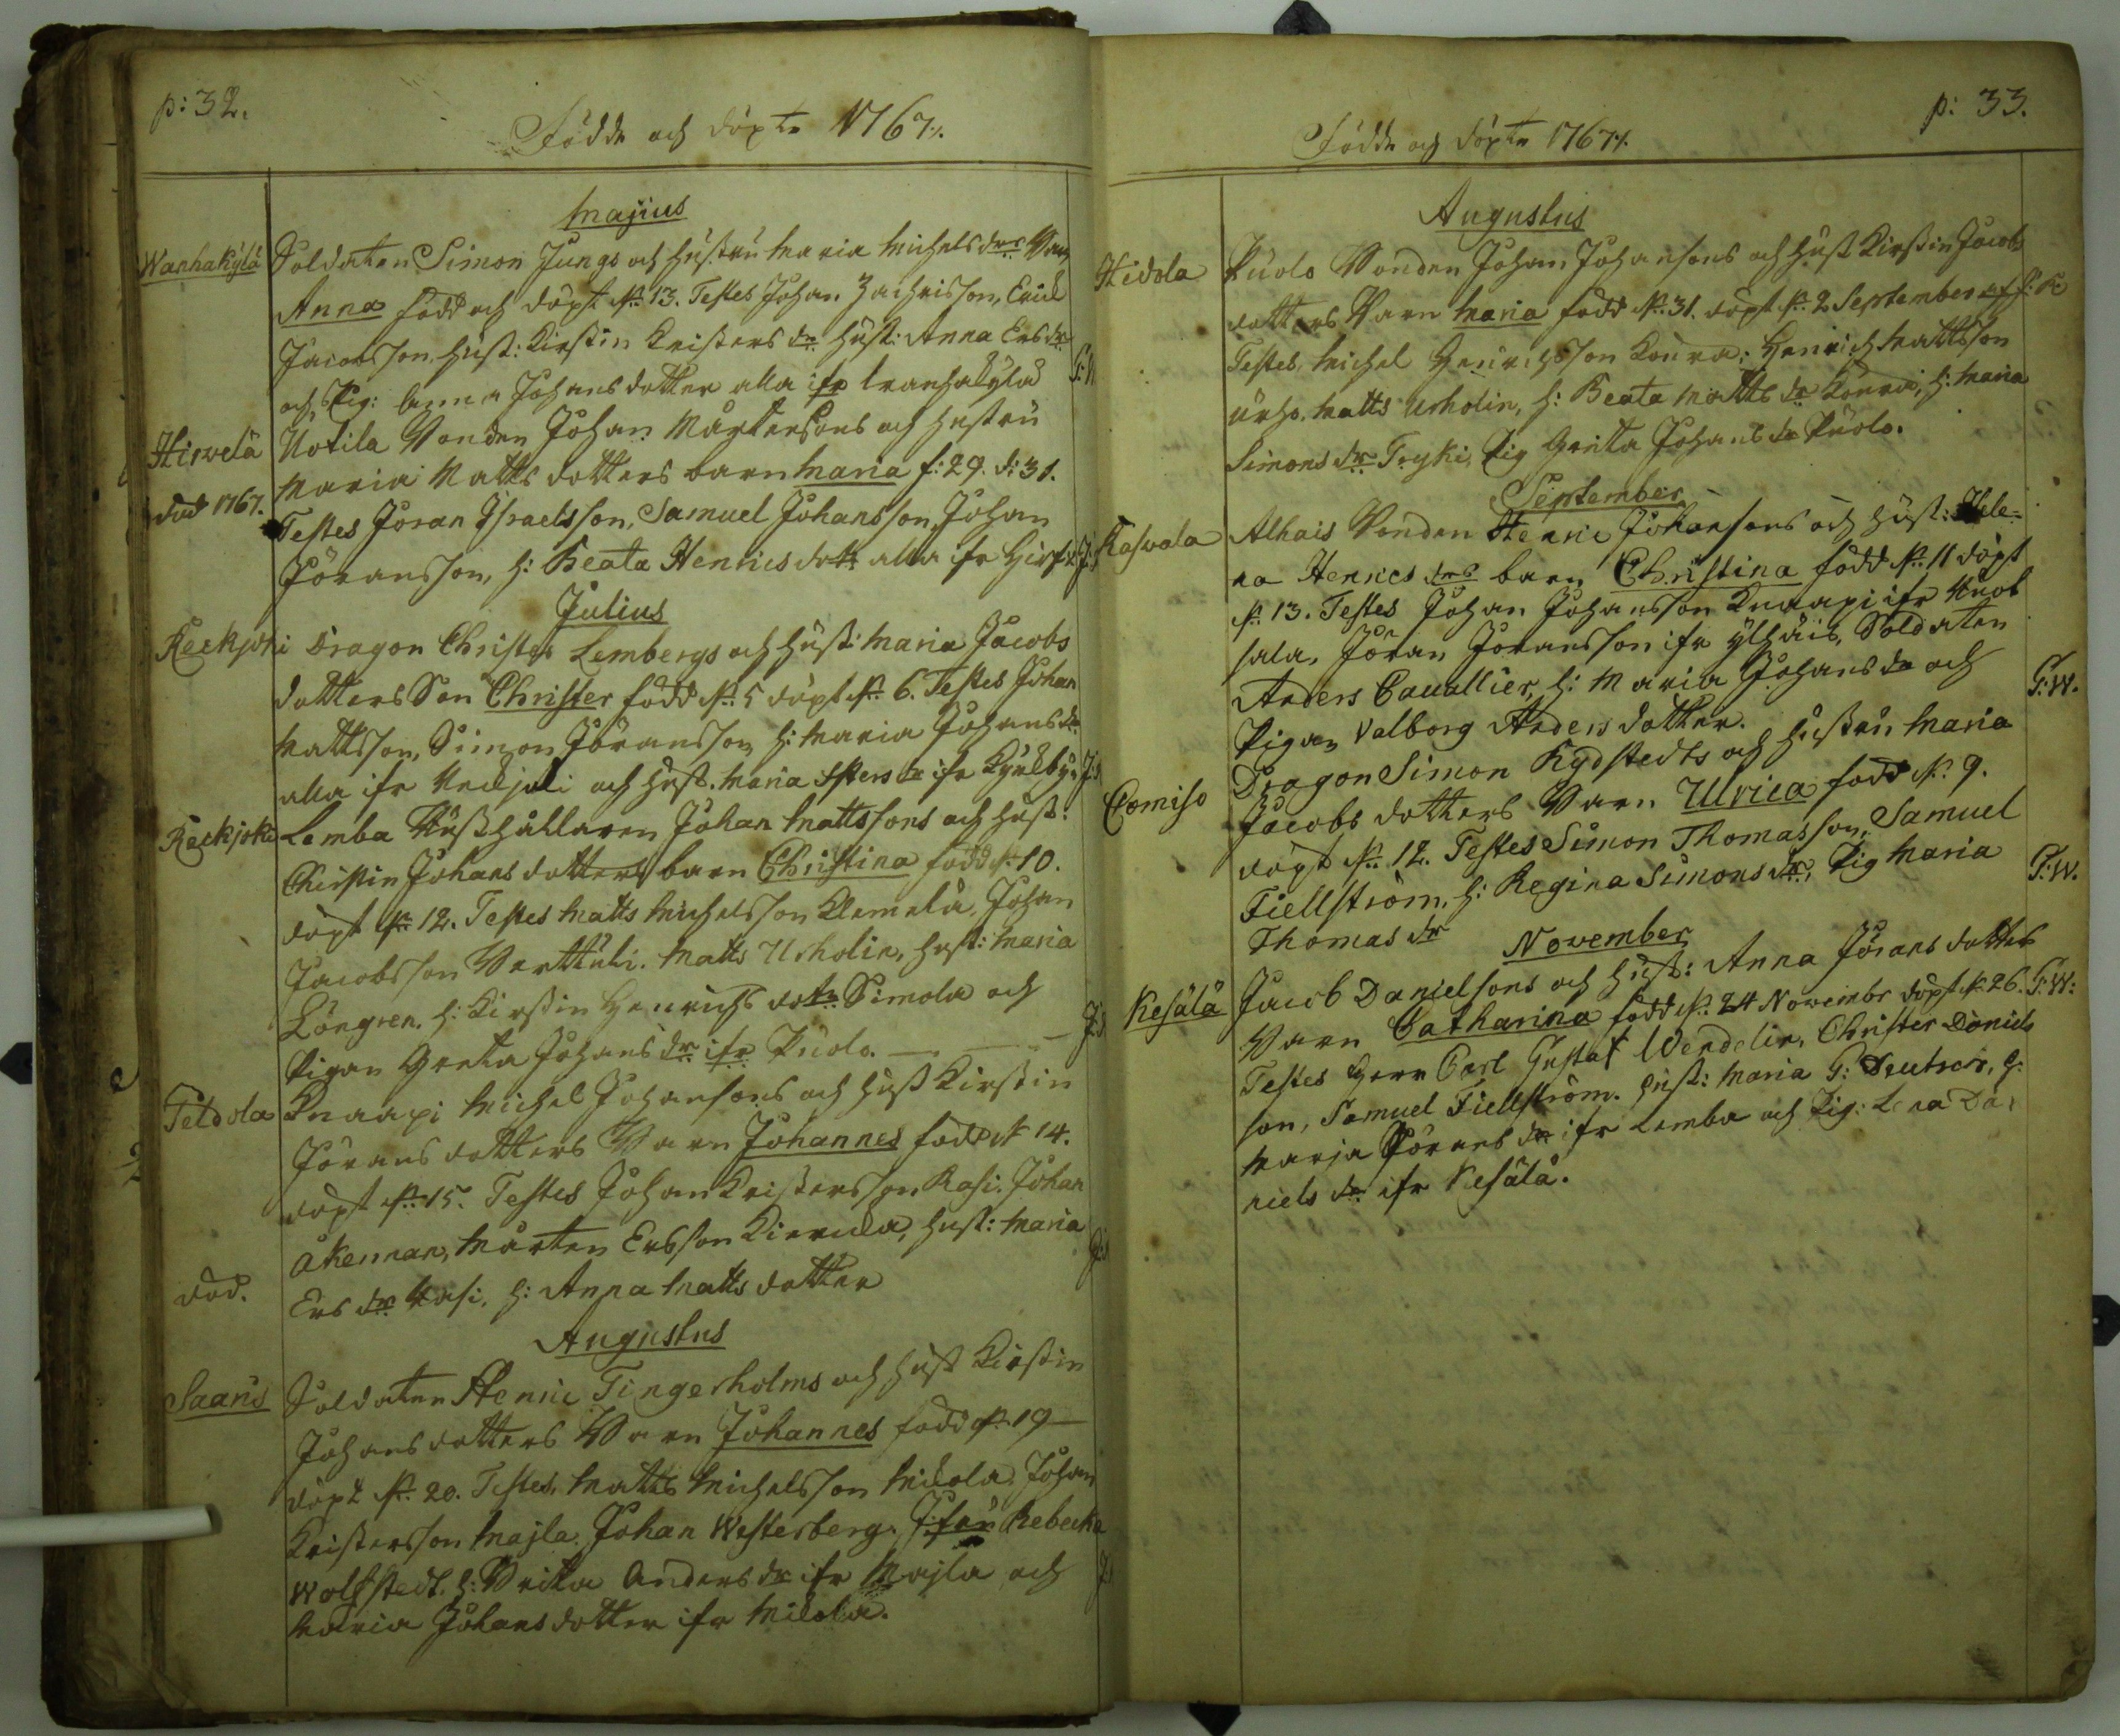 p: 32.
Födde och döpte 1767./.
Majus
Wanhakylä Soldaten Simon Jungs och hustru Maria Michelsdrs Barn
Anna född och döpt d. 13. Testes Johan Zachrisson, Erick
Jacobsson, hust: Kirstin Kristers dr hust: Anna Ers dr
och Pig: Anna Johansdotter alla ifr Wanhakylä
Hirvelä Uotila Bonden Johan Mårtensons och hustru
Maria Matts dotters barn Maria f: 29. d: 31.
död 1767. Testes Jöran Israelsson, Samuel Johansson, Johan
Jöransson, h: Beata Henrics dotr alla ifr
Julius
Keckjoki Dragon Christer Lembergs och hust: Maria Jacobs
dotters Son Christer född d. 5 döpt d. 6. Testes Johan
Mattsson, Simon Jöransson h: Maria Johans dr
alla ifr Keckjoki och hust. Maria dr ifr
Keckjoki Lemba Rusthållaren Johan Mattssons och hust:
Christin Johans dotters barn Christina född d. 10.
döpt d. 12. Testes Matts Michelsson Klemelä, Johan
Jacobsson Verttuli. Matts Urholin, hust: Maria
Löngren. h: Kirstin Henrichs dotr Simola och
Pigan Greta Johans dr ifr Puolo.
Peldola Knaapi Michel Johansons och hust Kirstin
Jörans dotters Barn Johannes född d 14.
döpt d. 15. Testes Johan Kristersson Rasi. Johan
Åkerman, Mårten Ersson Kierikka, hust: Maria
död. Ers dr Rasi, h: Anna Matts dotter
Augustus
Saaris Soldaten Henric Tingerholms och hust Kirstin
Johans dotters Barn Johannes född d. 19
döpt d. 20. Testes, Matts Michelsson Mikola, Johan
Kristersson Majla, Johan Westerberg. Jfru Rebecka
Wolfstedt. h: Brita Anders dr ifr Majla och
Maria Johans dotter ifr Mikola.
p: 33.
Födde och döpte 1767./.
Augustus
Hidola Puolo Bonden Johan Johansons och hust Kirstin Jacobs
dotters Barn Maria född d. 31. döpt d. 2 September af
Testes, Michel Henrichsson Konra; Henrich Mattsson
Matts Urholin, h: Beata Matts dr Konra, h: Maria
Simons dr Pig Greta Johans dr Puolo.
September
Kaswala Alhais Bonden Henric Johansons och hust: Hele-
na Henrics drs barn Christina född d. 11 döpt
d. 13. Testes Johan Johansson Knaapi ifr
sala, Jöran Jöransson ifr Ylhäis, Soldaten
Anders Cavallier, h: Maria Johans dr och
Pigan Valborg Anders dotter. G:W.
Comiso Dragon Simon Rydstedts och hustru Maria
Jacobs dotters Barn Ulrica född d. 9.
döpt d. 12. Testes Simon Thomasson, Samuel
Fiellström, h: Regina Simons dr, Pig Maria
Thomas dr G:W.
November
Kesälä Jacob Danielsons och hust: Anna Jörans dotters
Barn Catharina född d. 24 Novembr döpt d. 26. G:W:
Testes Herr Carl Gustaf Wendelin, Christer Daniels
son, Samuel Fiellström. hust: Maria G: h:
Marja Jörans dr ifr Lemba och Pig: Lena Da-
niels dr ifr Kesälä.